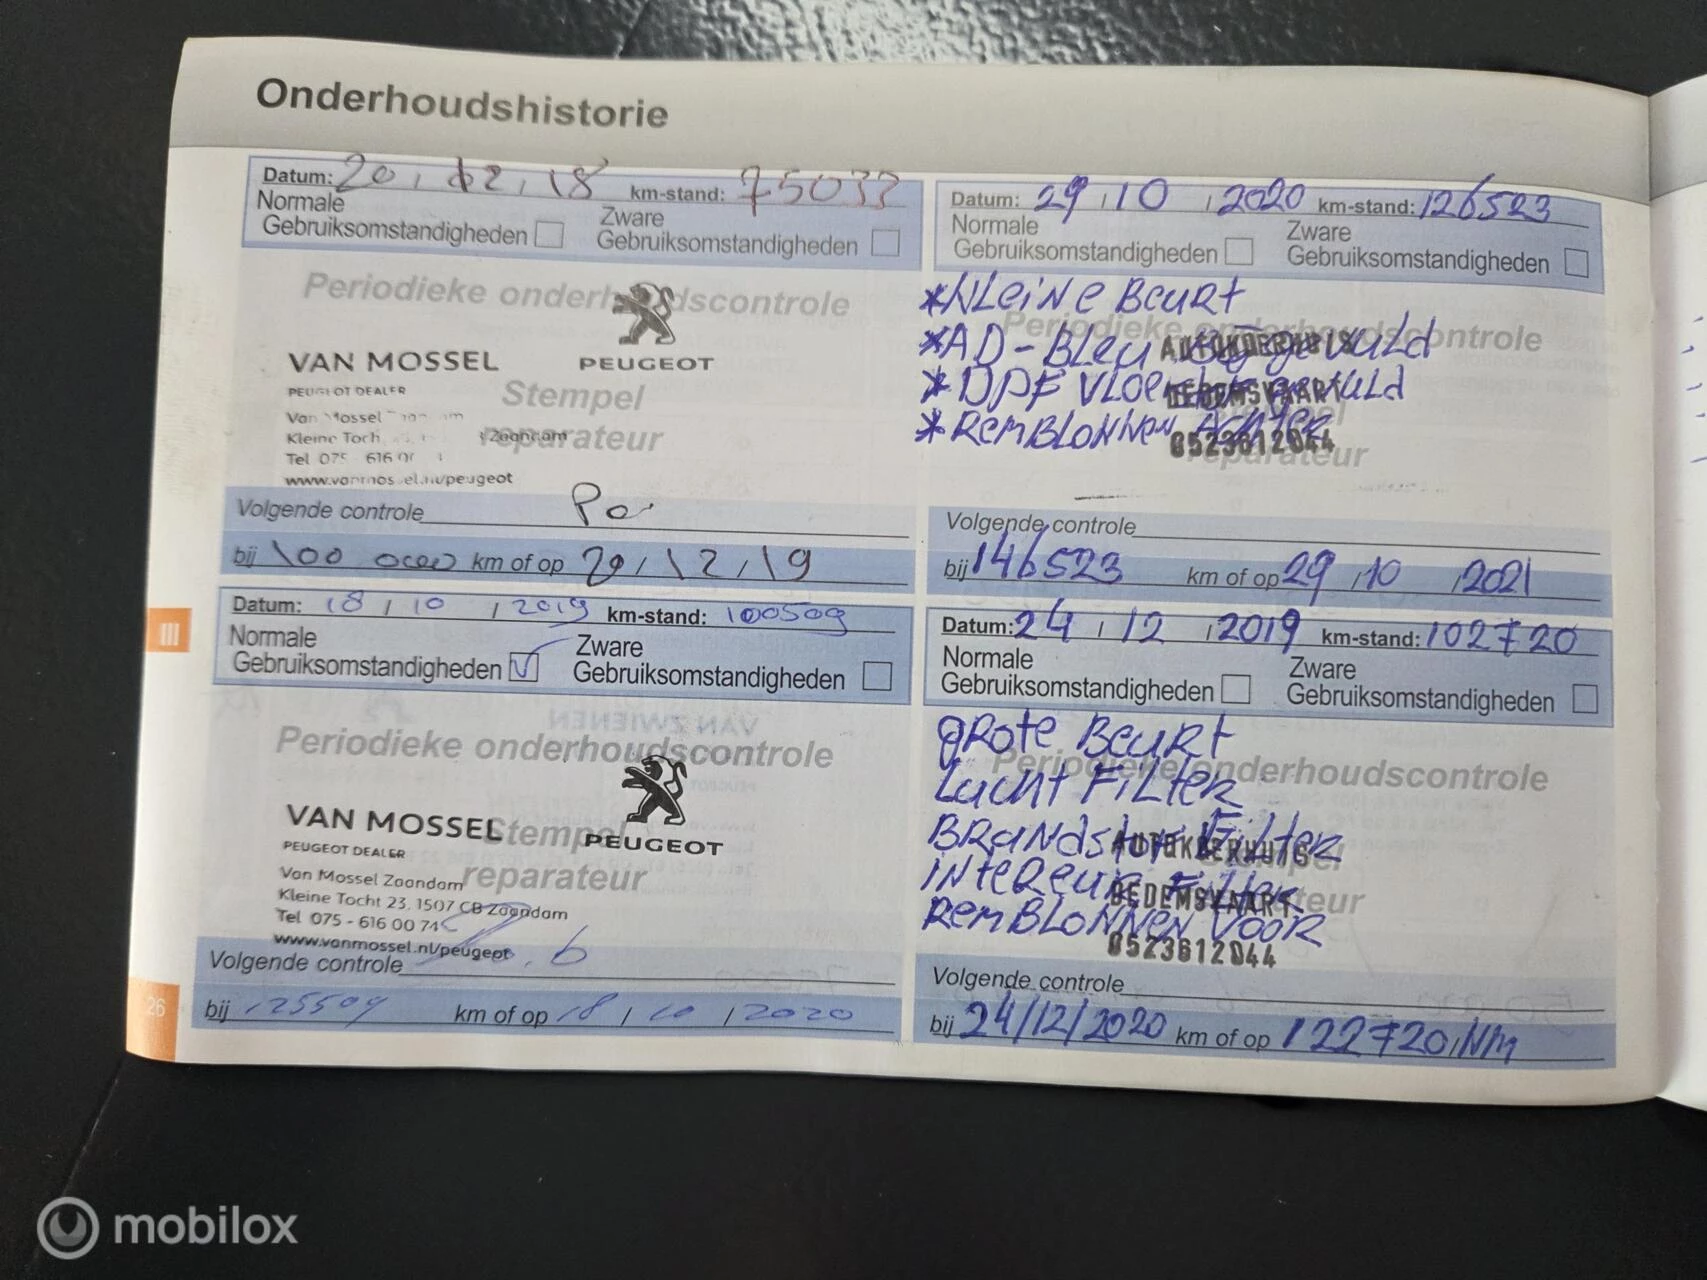 Onderhoudshistorie
Datum: 20 / 12 / 18 km-stand: 75033
Normale
Gebruiksomstandigheden
Zware
Gebruiksomstandigheden
Periodieke onderhoudscontrole
VAN MOSSEL
PEUGEOT DEALER
PEUGEOT
Stempel
reparateur
Van Mossel
Kleine Toch Zaandam
Tel 075 616
www.vanmossel.nl/peugeot
Volgende controle
bij 100 000 km of op 20 / 12 / 19
Datum: 29 / 10 / 2020 km-stand: 126523
Normale
Gebruiksomstandigheden
Zware
Gebruiksomstandigheden
Periodieke onderhoudscontrole
*Kleine Beurt
*AD-Bleu bijgevuld
*DPF Vloeistof gevuld
*Remblokken Achter
AUTOKDERHUIS
DEDEMSVAART
0523612044
reparateur
Volgende controle
bij 146523 km of op 29 / 10 / 2021
III
Datum: 18 / 10 / 2019 km-stand: 100509
Normale
Gebruiksomstandigheden
Zware
Gebruiksomstandigheden
Periodieke onderhoudscontrole
VAN MOSSEL
PEUGEOT DEALER
PEUGEOT
Stempel
reparateur
Van Mossel Zaandam
Kleine Tocht 23, 1507 CB Zaandam
Tel 075 - 616 00 74
www.vanmossel.nl/peugeot
Volgende controle
bij 125509 km of op 18 / 10 / 2020
26
Datum: 24 / 12 / 2019 km-stand: 102720
Normale
Gebruiksomstandigheden
Zware
Gebruiksomstandigheden
Periodieke onderhoudscontrole
grote Beurt
Lucht Filter
Brandstof Filter
intereur Filter
Remblokken Voor
AUTOKDERHUIS
DEDEMSVAART
0523612044
Volgende controle
bij 24/12/2020 km of op 122720 KM
mobilox